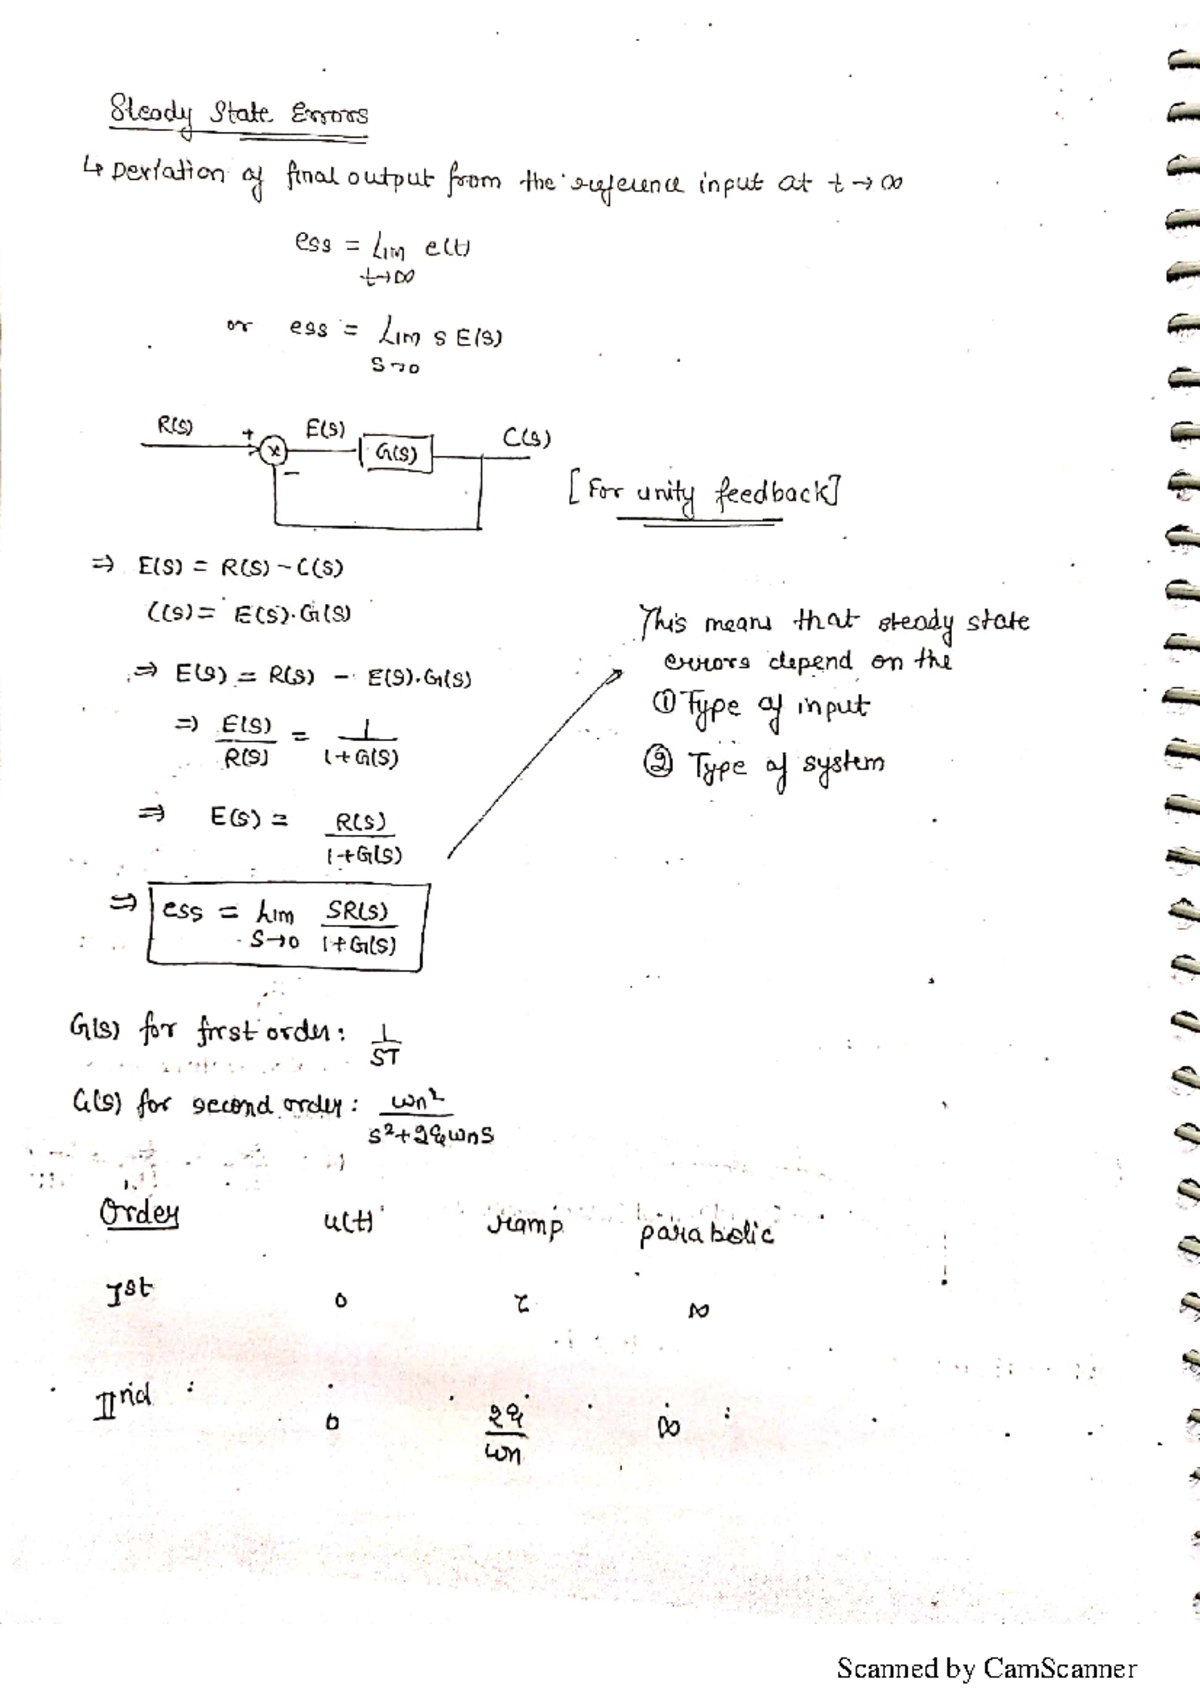 Steady State Errors
↳ Deviation of final output from the reference input at t → ∞
ess = Lim e(t)
t→∞
or ess = Lim s E(s)
s→0
R(s) + E(s) G(s) C(s)
−
[For unity feedback]
⇒ E(s) = R(s) − C(s)
C(s) = E(s).G(s)
⇒ E(s) = R(s) − E(s).G(s)
⇒ E(s)/R(s) = 1/(1+G(s))
⇒ E(s) = R(s)/(1+G(s))
⇒ ess = Lim s→0 SR(s)/(1+G(s))
This means that steady state
errors depend on the
① Type of input
② Type of system
G(s) for first order: 1/ST
G(s) for second order: ωn²/(s²+2ξωns)
Order u(t) ramp parabolic
Ist 0 τ ∞
IInd 0 2ξ/ωn ∞
Scanned by CamScanner